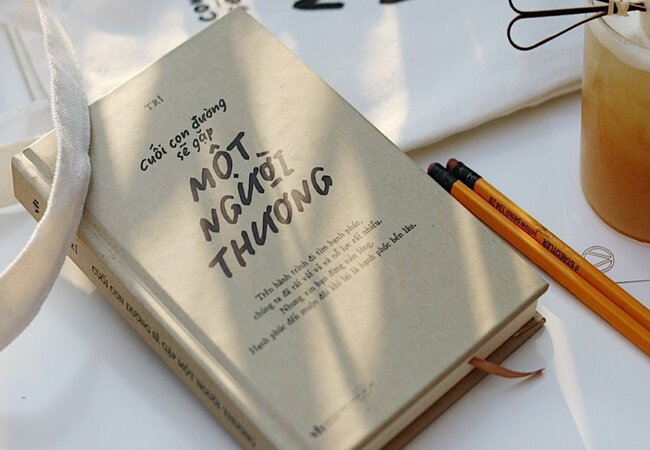 TRÍ
cuối con đường
sẽ gặp
MỘT
NGƯỜI
THƯƠNG
Trên hành trình đi tìm hạnh phúc,
chúng ta đã rất vất vả và nỗ lực rất nhiều.
Nhưng xin bạn đừng nản lòng.
Hạnh phúc đến muộn đôi khi lại là hạnh phúc bền lâu.
CUỐI CON ĐƯỜNG SẼ GẶP MỘT NGƯỜI THƯƠNG
STAEDTLER